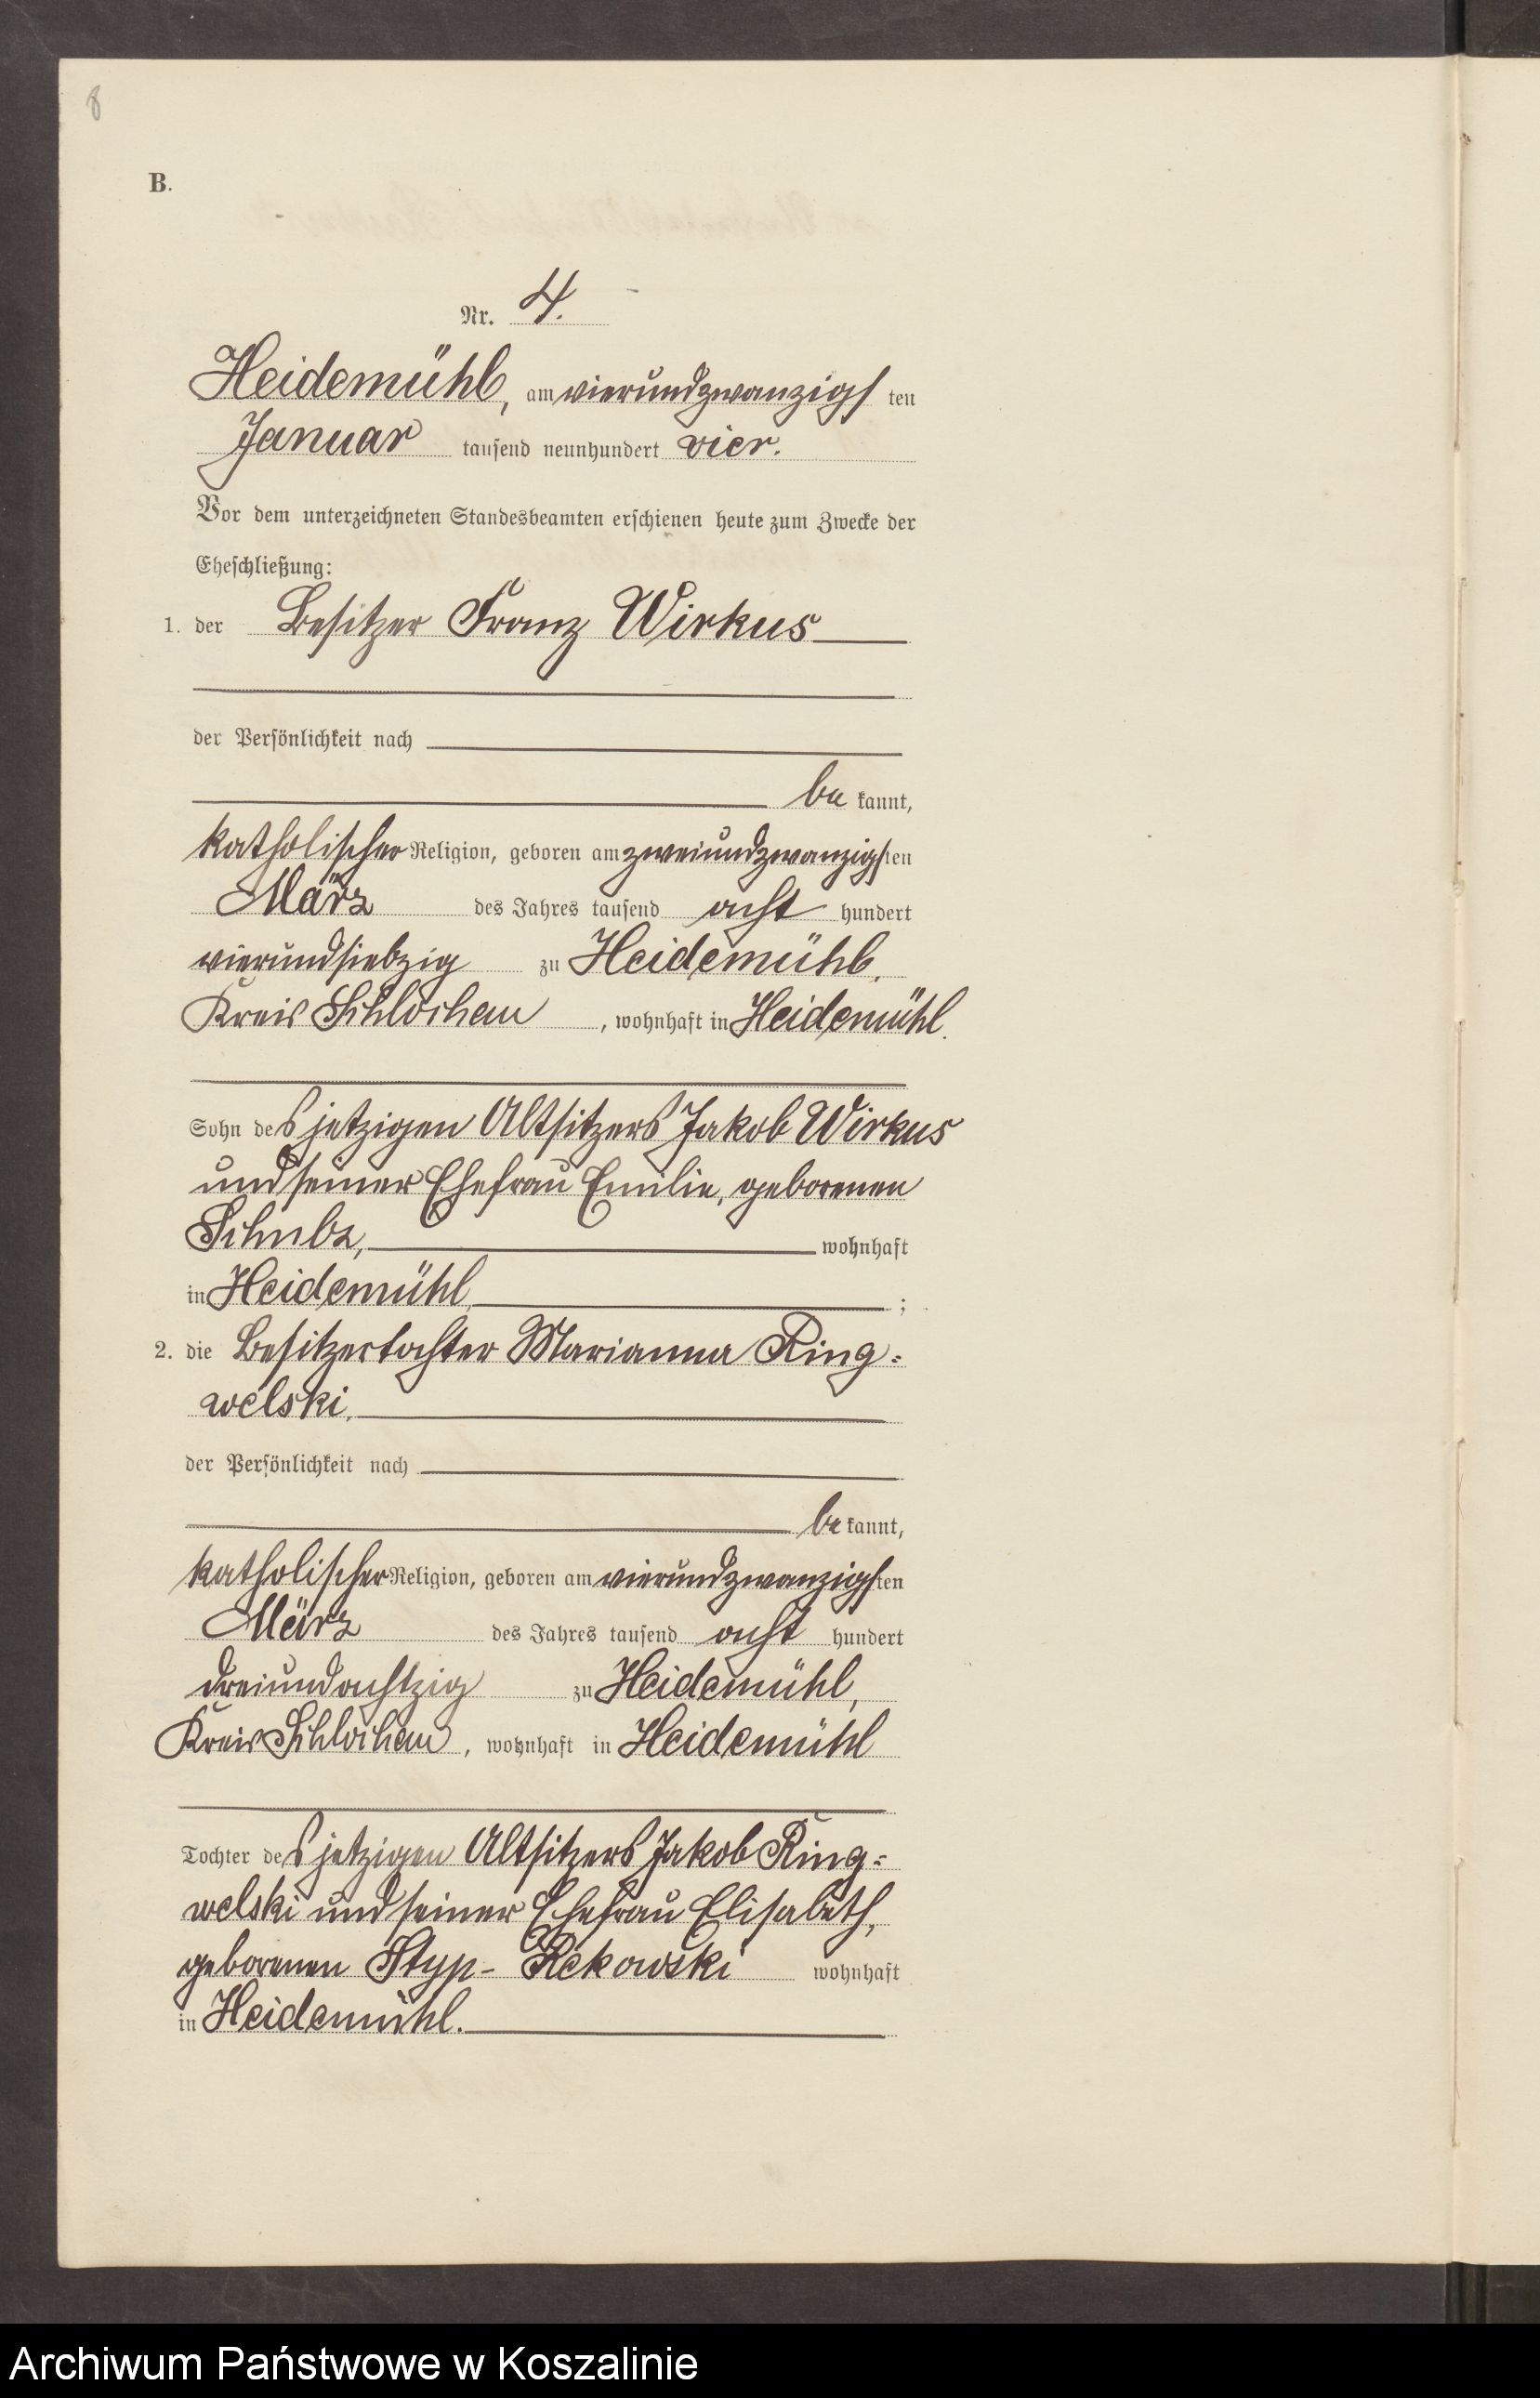 8
B.
Nr. 4.
Heidemühl, am vierundzwanzigsten
Januar tausend neunhundert vier.
Vor dem unterzeichneten Standesbeamten erschienen heute zum Zwecke der
Eheschließung:
1. der Besitzer Franz Wirkus
der Persönlichkeit nach
be kannt,
katholischer Religion, geboren am zweiundzwanzigsten
März des Jahres tausend acht hundert
vierundsiebzig zu Heidemühl,
Kreis Schlochau, wohnhaft in Heidemühl.
Sohn des jetzigen Altsitzers Jakob Wirkus
und seiner Ehefrau Emilie, geborenen
Schulz, wohnhaft
in Heidemühl, ;
2. die Besitzertochter Marianna Ring=
welski,
der Persönlichkeit nach
be kannt,
katholischer Religion, geboren am vierundzwanzigsten
März des Jahres tausend acht hundert
dreiundachtzig zu Heidemühl,
Kreis Schlochau, wohnhaft in Heidemühl
Tochter des jetzigen Altsitzers Jakob Ring=
welski und seiner Ehefrau Elisabeth,
geborenen Styp- Rekowski wohnhaft
in Heidemühl.
Archiwum Państwowe w Koszalinie